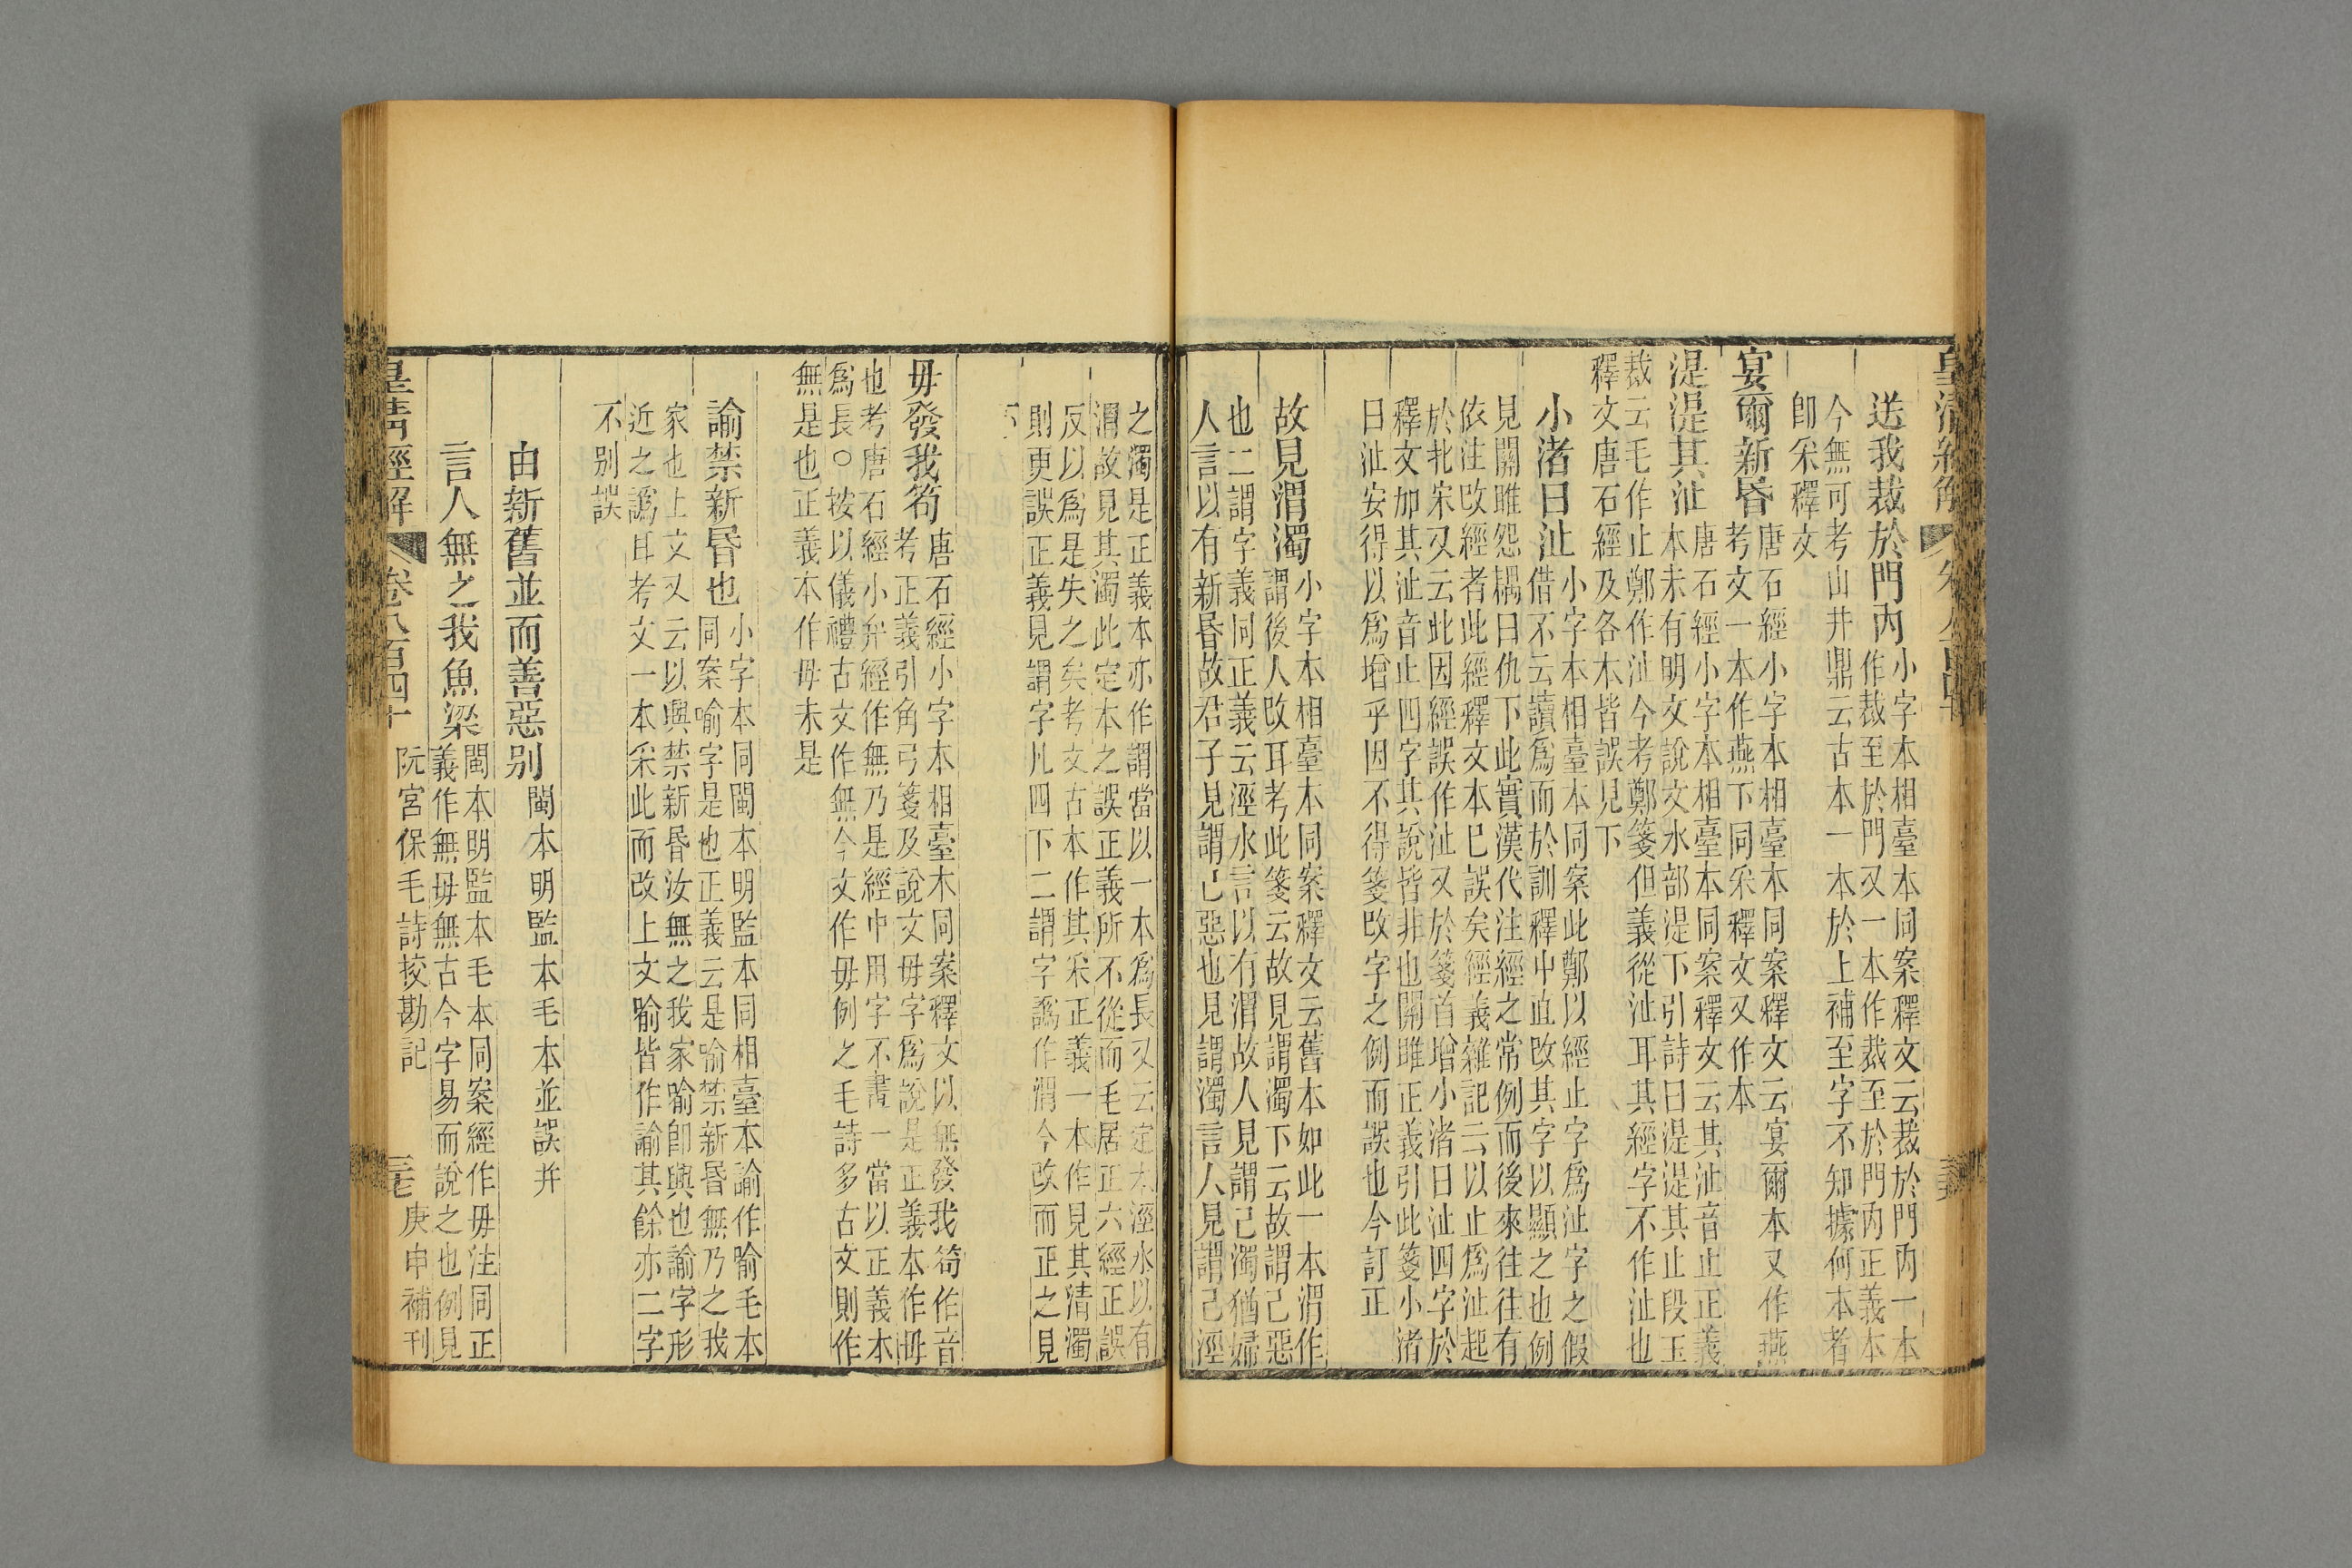 皇清經解 卷八百四十
送我裁於門內小字本相臺本同案釋文云裁於門內一本
作裁至於門又一本作裁至於門內正義本
今無可考山井鼎云古本一本於上補至字不知據何本者
卽采釋文
宴爾新昏唐石經小字本相臺本同案釋文云宴爾本又作燕
考文一本作燕下同采釋文又作本
湜湜其沚唐石經小字本相臺本同案釋文云其沚音止正義
本未有明文說文水部湜下引詩曰湜湜其止段玉
裁云毛作止鄭作沚今考鄭箋但義從沚耳其經字不作沚也
釋文唐石經及各本皆誤見下
小渚曰沚小字本相臺本同案此鄭以經止字爲沚字之假
借不云讀爲而於訓釋中直改其字以顯之也例
見關雎怨耦曰仇下此實漢代注經之常例而後來往往有
依注改經者此經釋文本已誤矣經義雜記云以止爲沚起
於北宋又云此因經誤作沚又於箋首增小渚曰沚四字於
釋文加其沚音止四字其說皆非也關雎正義引此箋小渚
曰沚安得以爲增乎因不得箋改字之例而誤也今訂正
故見渭濁小字本相臺本同案釋文云舊本如此一本渭作
謂後人改耳考此箋云故見謂濁下云故謂己惡
也二謂字義同正義云涇水言以有渭故人見謂己濁猶婦
人言以有新昏故君子見謂己惡也見謂濁言人見謂己涇
之濁是正義本亦作謂當以一本爲長又云定本涇水以有
渭故見其濁此定本之誤正義所不從而毛居正六經正誤
反以爲是失之矣考文古本作其采正義一本作見其清濁
則更誤正義見謂字凡四下二謂字譌作渭今改而正之見
下
毋發我笱唐石經小字本相臺本同案釋文以無發我笱作音
考正義引角弓箋及說文毋字爲說是正義本作毋
也考唐石經小弁經作無乃是經中用字不畫一當以正義本
爲長○按以儀禮古文作無今文作毋例之毛詩多古文則作
無是也正義本作毋未是
諭禁新昏也小字本同閩本明監本同相臺本諭作喻毛本
同案喻字是也正義云是喻禁新昏無乃之我
家也上文又云以興禁新昏汝無之我家喻卽興也諭字形
近之譌耳考文一本采此而改上文喻皆作諭其餘亦二字
不別誤
由新舊並而善惡別閩本明監本毛本並誤并
言人無之我魚梁閩本明監本毛本同案經作毋注同正
義作無毋無古今字易而說之也例見
皇清經解 卷八百四十 阮宮保毛詩挍勘記 庚申補刊